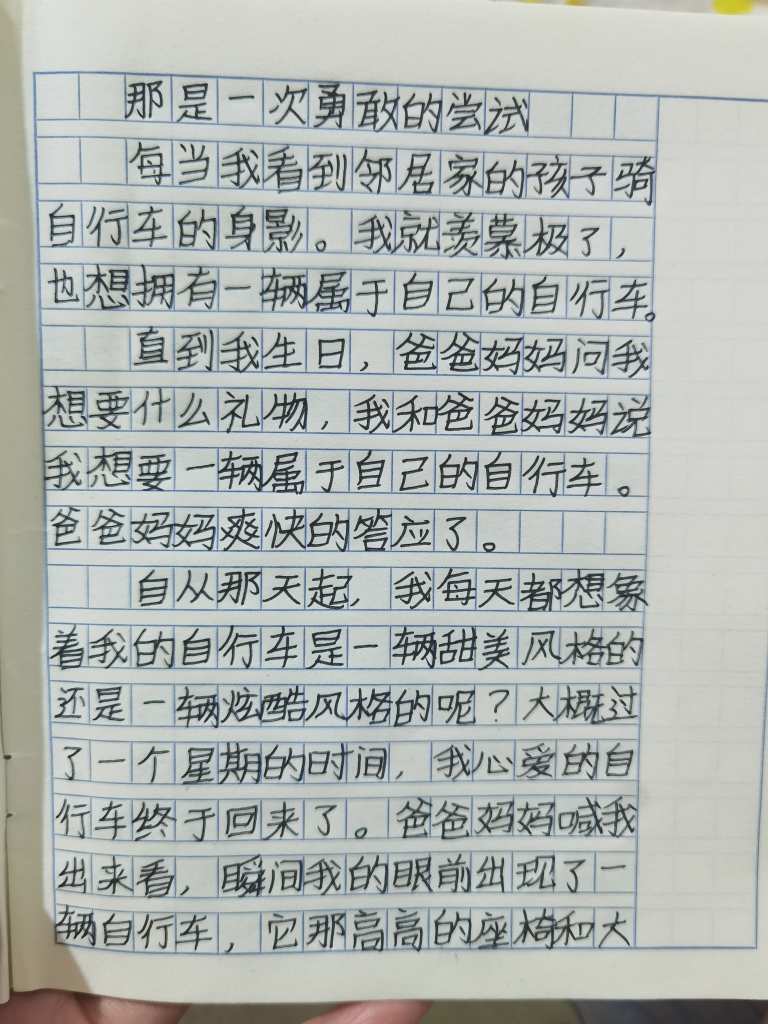 那是一次勇敢的尝试
每当我看到邻居家的孩子骑
自行车的身影。我就羡慕极了，
也想拥有一辆属于自己的自行车。
直到我生日，爸爸妈妈问我
想要什么礼物，我和爸爸妈妈说
我想要一辆属于自己的自行车。
爸爸妈妈爽快的答应了。
自从那天起，我每天都想象
着我的自行车是一辆甜美风格的
还是一辆炫酷风格的呢？大概过
了一个星期的时间，我心爱的自
行车终于回来了。爸爸妈妈喊我
出来看，瞬间我的眼前出现了一
辆自行车，它那高高的座椅和大